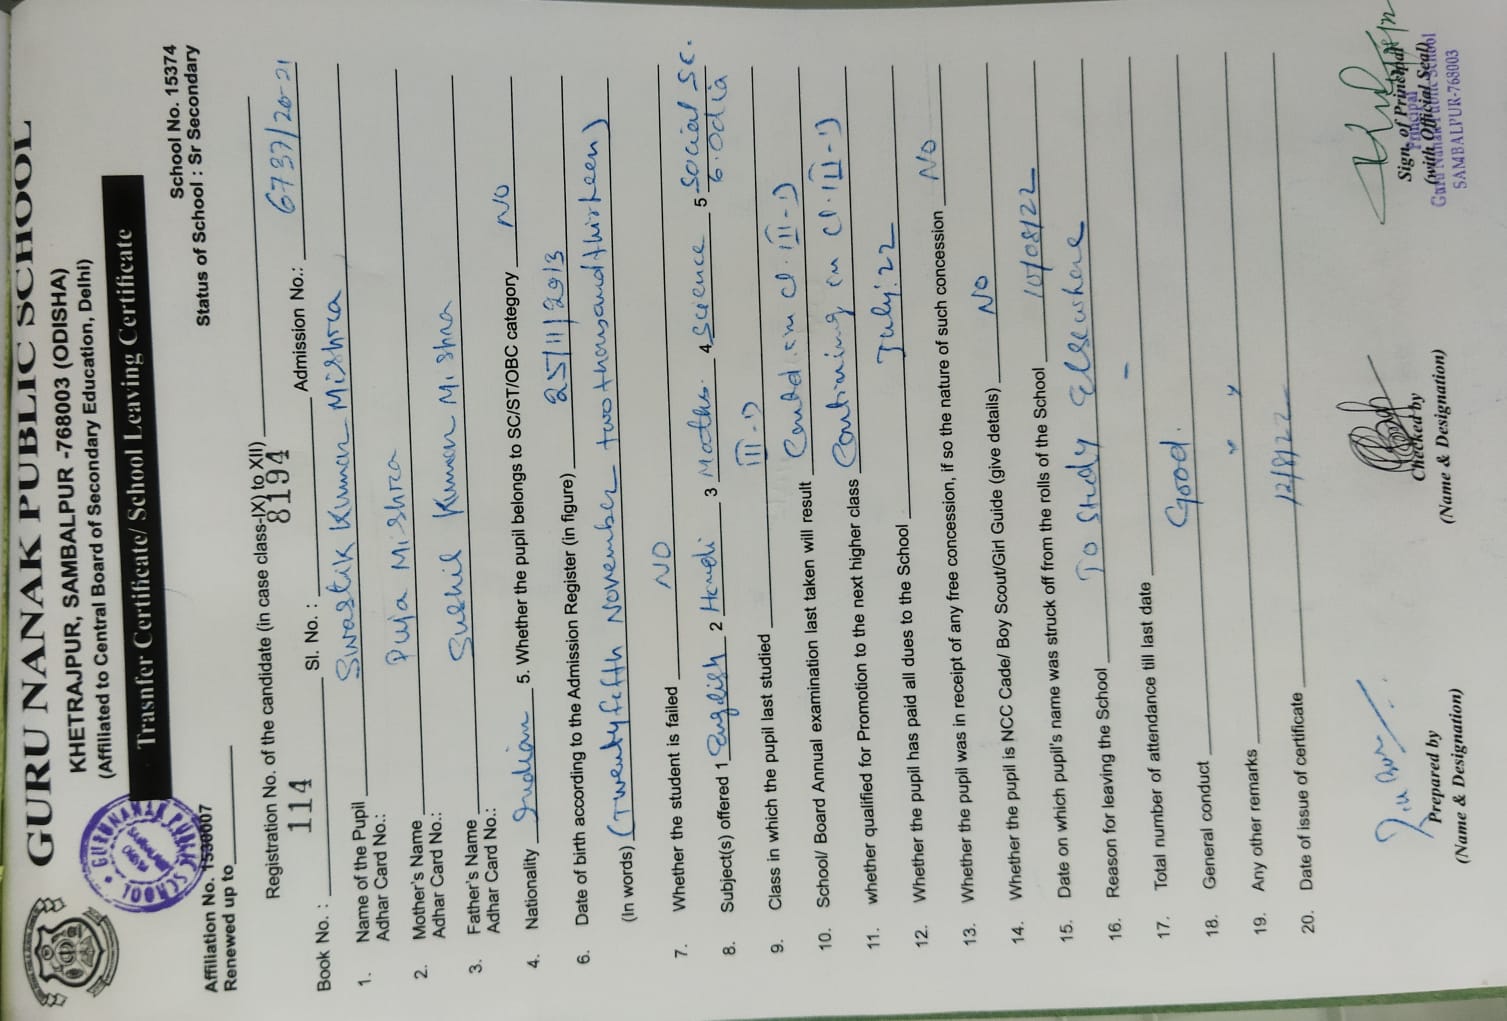 GURU NANAK PUBLIC SCHOOL
KHETRAJPUR, SAMBALPUR -768003 (ODISHA)
(Affiliated to Central Board of Secondary Education, Delhi)
Trasnfer Certificate/ School Leaving Certificate
GURU NANAK PUBLIC SCHOOL
Affiliation No. 1530007 School No. 15374
Renewed up to Status of School : Sr Secondary
Registration No. of the candidate (in case class-IX) to XII)
Book No. : 114 Sl. No. : 8194 Admission No.: 6737/20-21
1. Name of the Pupil Swastik Kumar Mishra
Adhar Card No.:
2. Mother's Name Puja Mishra
Adhar Card No.:
3. Father's Name Sushil Kumar Mishra
Adhar Card No.:
4. Nationality Indian 5. Whether the pupil belongs to SC/ST/OBC category NO
6. Date of birth according to the Admission Register (in figure) 25/11/2013
(In words) (Twentyfifth November two thousand thirteen)
7. Whether the student is failed NO
8. Subject(s) offered 1 English 2 Hindi 3 Maths. 4 Science 5 Social Sc.
6. Odia
9. Class in which the pupil last studied III-J
10. School/ Board Annual examination last taken will result Contd. in Cl. III-J
11. whether qualified for Promotion to the next higher class Continuing in Cl. III-J)
12. Whether the pupil has paid all dues to the School July'22
13. Whether the pupil was in receipt of any free concession, if so the nature of such concession No
14. Whether the pupil is NCC Cade/ Boy Scout/Girl Guide (give details) No
15. Date on which pupil's name was struck off from the rolls of the School 10/08/22
16. Reason for leaving the School To Study Elsewhere
17. Total number of attendance till last date -
18. General conduct Good.
19. Any other remarks
20. Date of issue of certificate 12/8/22
Prepared by Checked by Sign. of Principal
(Name & Designation) (Name & Designation) (with Official Seal)
Principal
Guru Nanak Public School
SAMBALPUR-768003